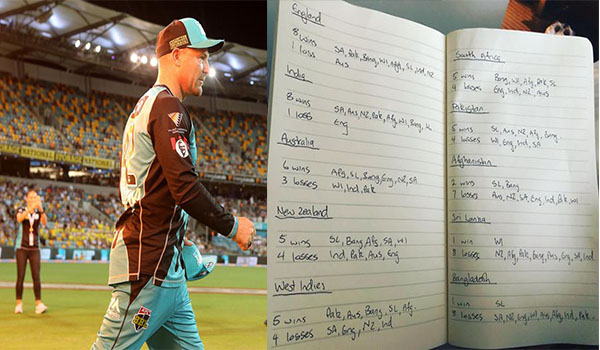 England
8 wins SA, Pak, Bang, WI, Afg, SL, Ind, NZ
1 loss Aus
India
8 wins SA, Aus, NZ, Pak, Afg, WI, Bang, SL
1 loss Eng
Australia
6 wins Afg, SL, Bang, Eng, NZ, SA
3 losses WI, Ind, Pak
New Zealand
5 wins SL, Bang, Afg, SA, WI
4 losses Ind, Pak, Aus, Eng
West Indies
5 wins Pak, Aus, Bang, SL, Afg.
4 losses SA, Eng, NZ, Ind
South Africa
5 wins Bang, WI, Afg, Pak, SL
4 losses Eng, Ind, NZ, Aus
Pakistan
5 wins SL, Aus, NZ, Afg, Bang
4 losses WI, Eng, Ind, SA
Afghanistan
2 wins SL, Bang
7 losses Aus, NZ, SA, Eng, Ind, Pak, WI
Sri Lanka
1 win WI
8 losses NZ, Afg, Pak, Bang, Aus, Eng, SA, Ind
Bangladesh
1 win SL
8 losses SA, NZ, Eng, WI, Aus, Afg, Ind, Pak